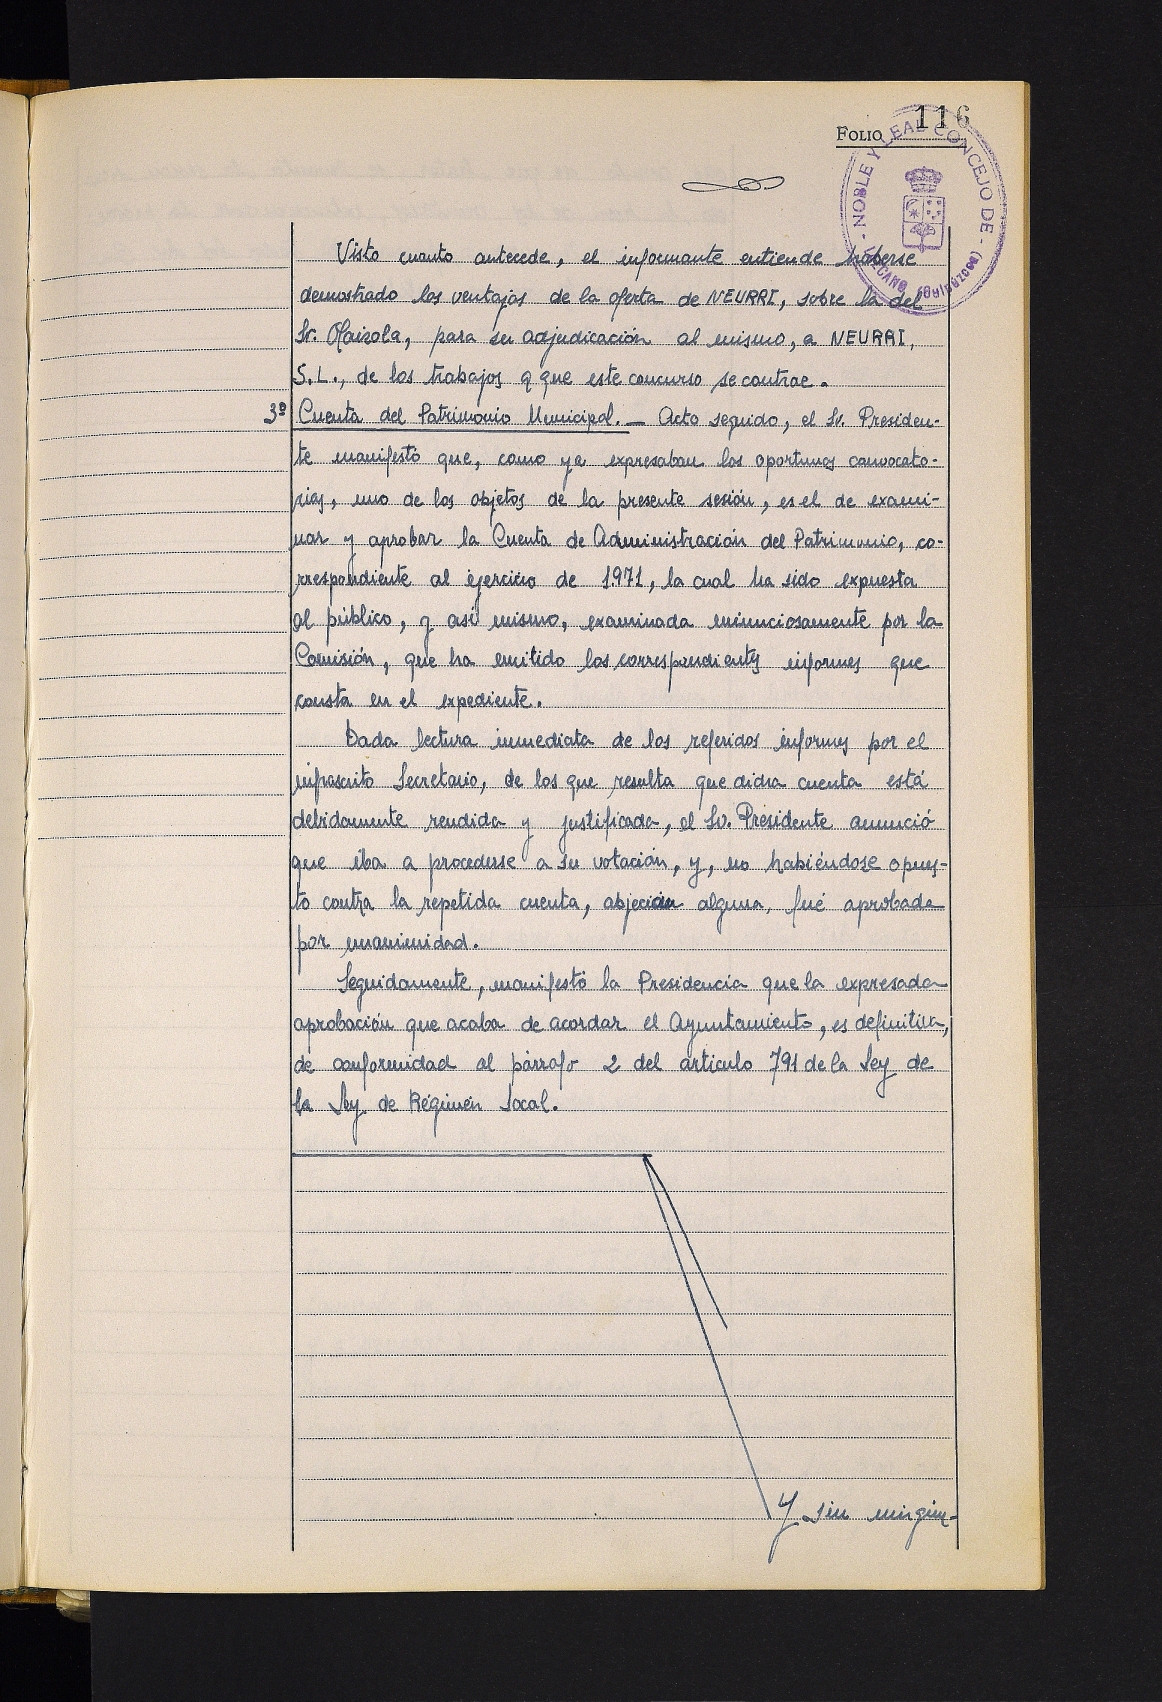 FOLIO 116
- NOBLE Y LEAL CONCEJO DE - LEZCANO (Guipúzcoa)
Visto cuanto antecede, el informante entiende haberse
demostrado las ventajas de la oferta de NEURRI, sobre la del
Sr. Olaizola, para su adjudicación al mismo, a NEURRI,
S.L., de los trabajos a que este concurso se contrae.
3º Cuenta del Patrimonio Municipal. — Acto seguido, el Sr. Presiden-
te manifestó que, como ya expresaban las oportunas convocato-
rias, uno de los objetos de la presente sesión, es el de exami-
nar y aprobar la Cuenta de Administración del Patrimonio, co-
rrespondiente al ejercicio de 1.971, la cual ha sido expuesta
al público, y así mismo, examinada minuciosamente por la
Comisión, que ha emitido los correspondientes informes que
consta en el expediente.
Dada lectura inmediata de los referidos informes por el
infrascrito Secretario, de los que resulta que dicha cuenta está
debidamente rendida y justificada, el Sr. Presidente anunció
que iba a procederse a su votación, y, no habiéndose opues-
to contra la repetida cuenta, objeción alguna, fué aprobada
por unanimidad.
Seguidamente, manifestó la Presidencia que la expresada
aprobación que acaba de acordar el Ayuntamiento, es definitiva,
de conformidad al párrafo 2 del artículo 791 de la Ley de
la Ley de Régimen Local.
Y sin ningún-